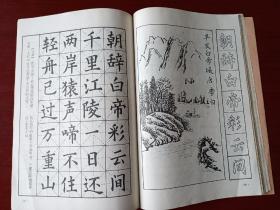 朝辞白帝彩云间
早发白帝城 唐 李白
朝辞白帝彩云间
千里江陵一日还
两岸猿声啼不住
轻舟已过万重山